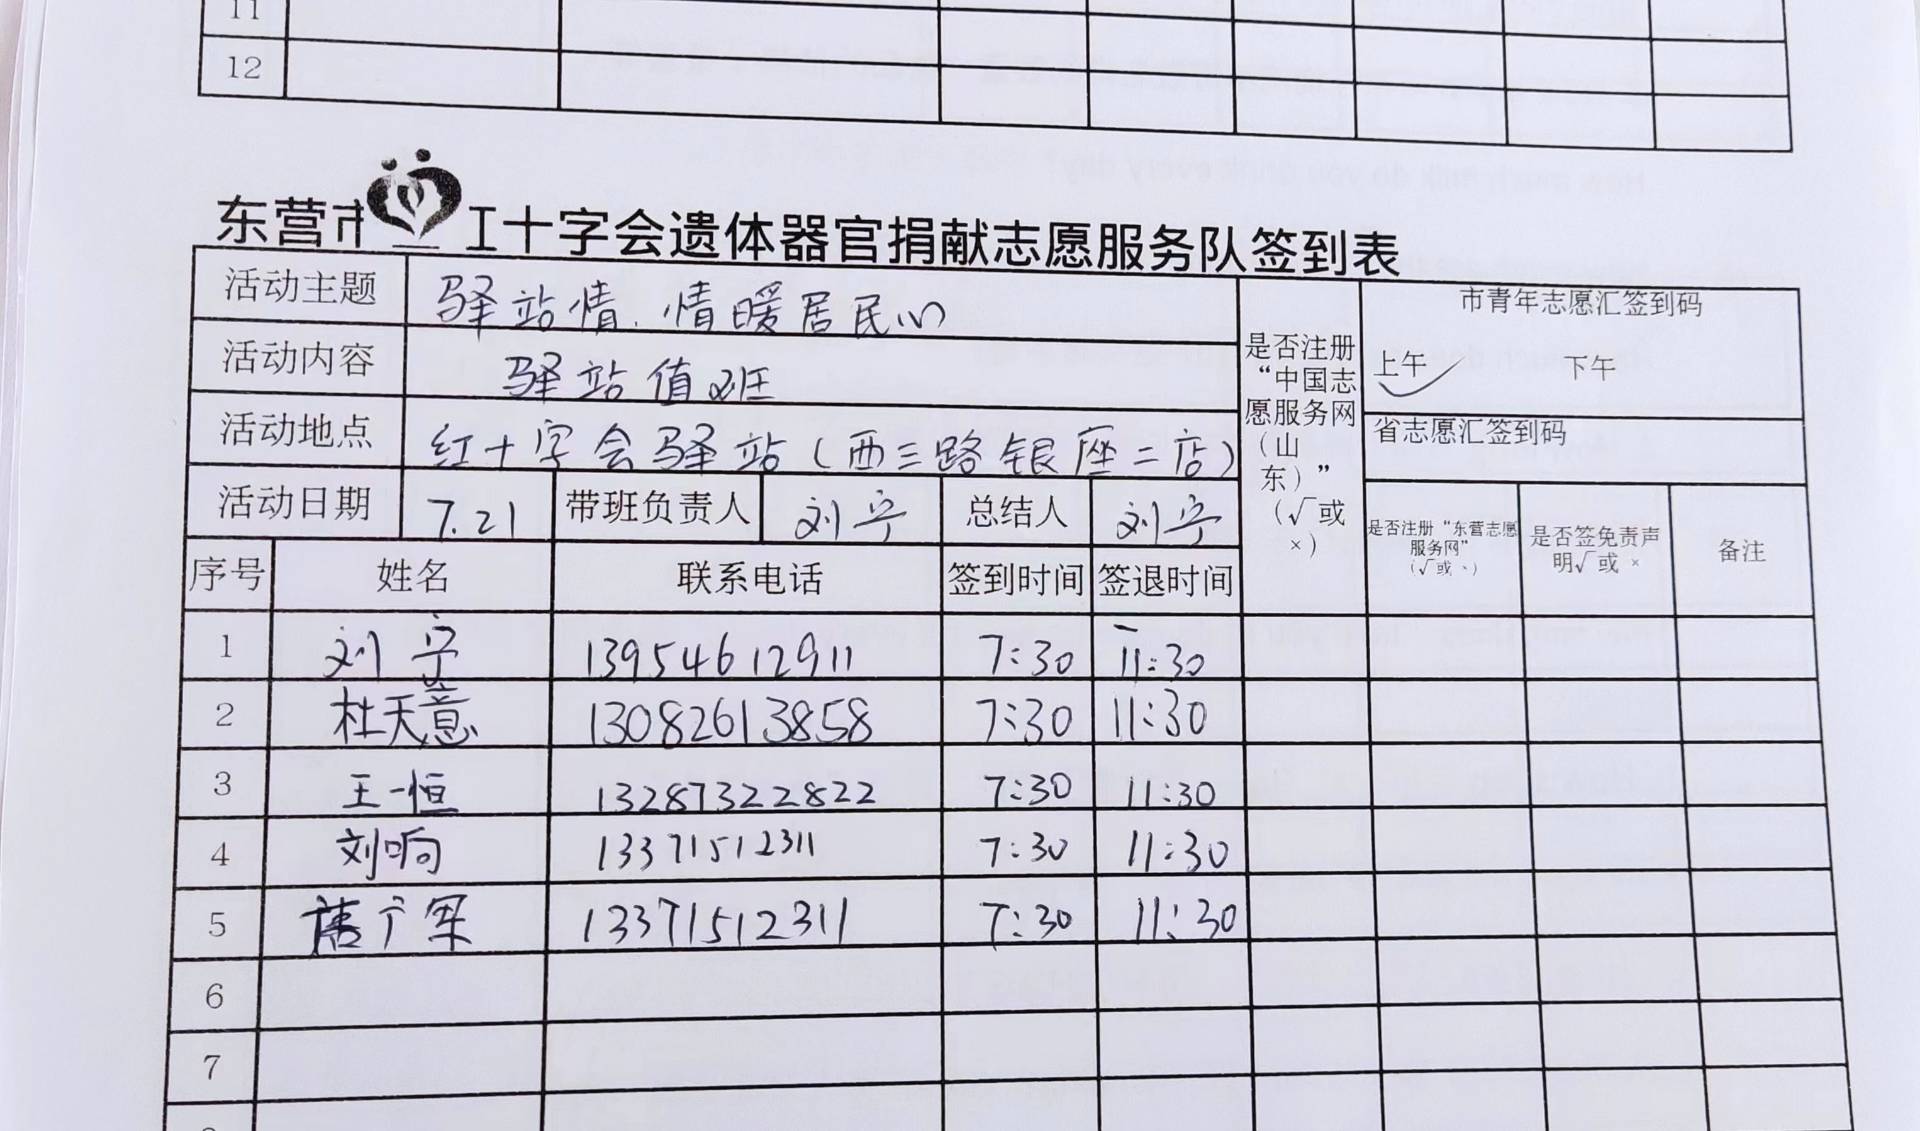 11
12
东营市红十字会遗体器官捐献志愿服务队签到表
活动主题 驿站情.情暖居民心
活动内容 驿站值班
活动地点 红十字会驿站(西三路银座二店)
活动日期 7.21 带班负责人 刘宁 总结人 刘宁
是否注册
“中国志
愿服务网
(山
东)”
(√或
×)
市青年志愿汇签到码
上午 ✓ 下午
省志愿汇签到码
是否注册“东营志愿
服务网”
(√或、)
是否签免责声
明√或 ×
备注
序号 姓名 联系电话 签到时间 签退时间
1 刘宁 13954612911 7:30 11:30
2 杜天意 13082613858 7:30 11:30
3 王一恒 13287322822 7:30 11:30
4 刘响 13371512311 7:30 11:30
5 广军 13371512311 7:30 11:30
6
7